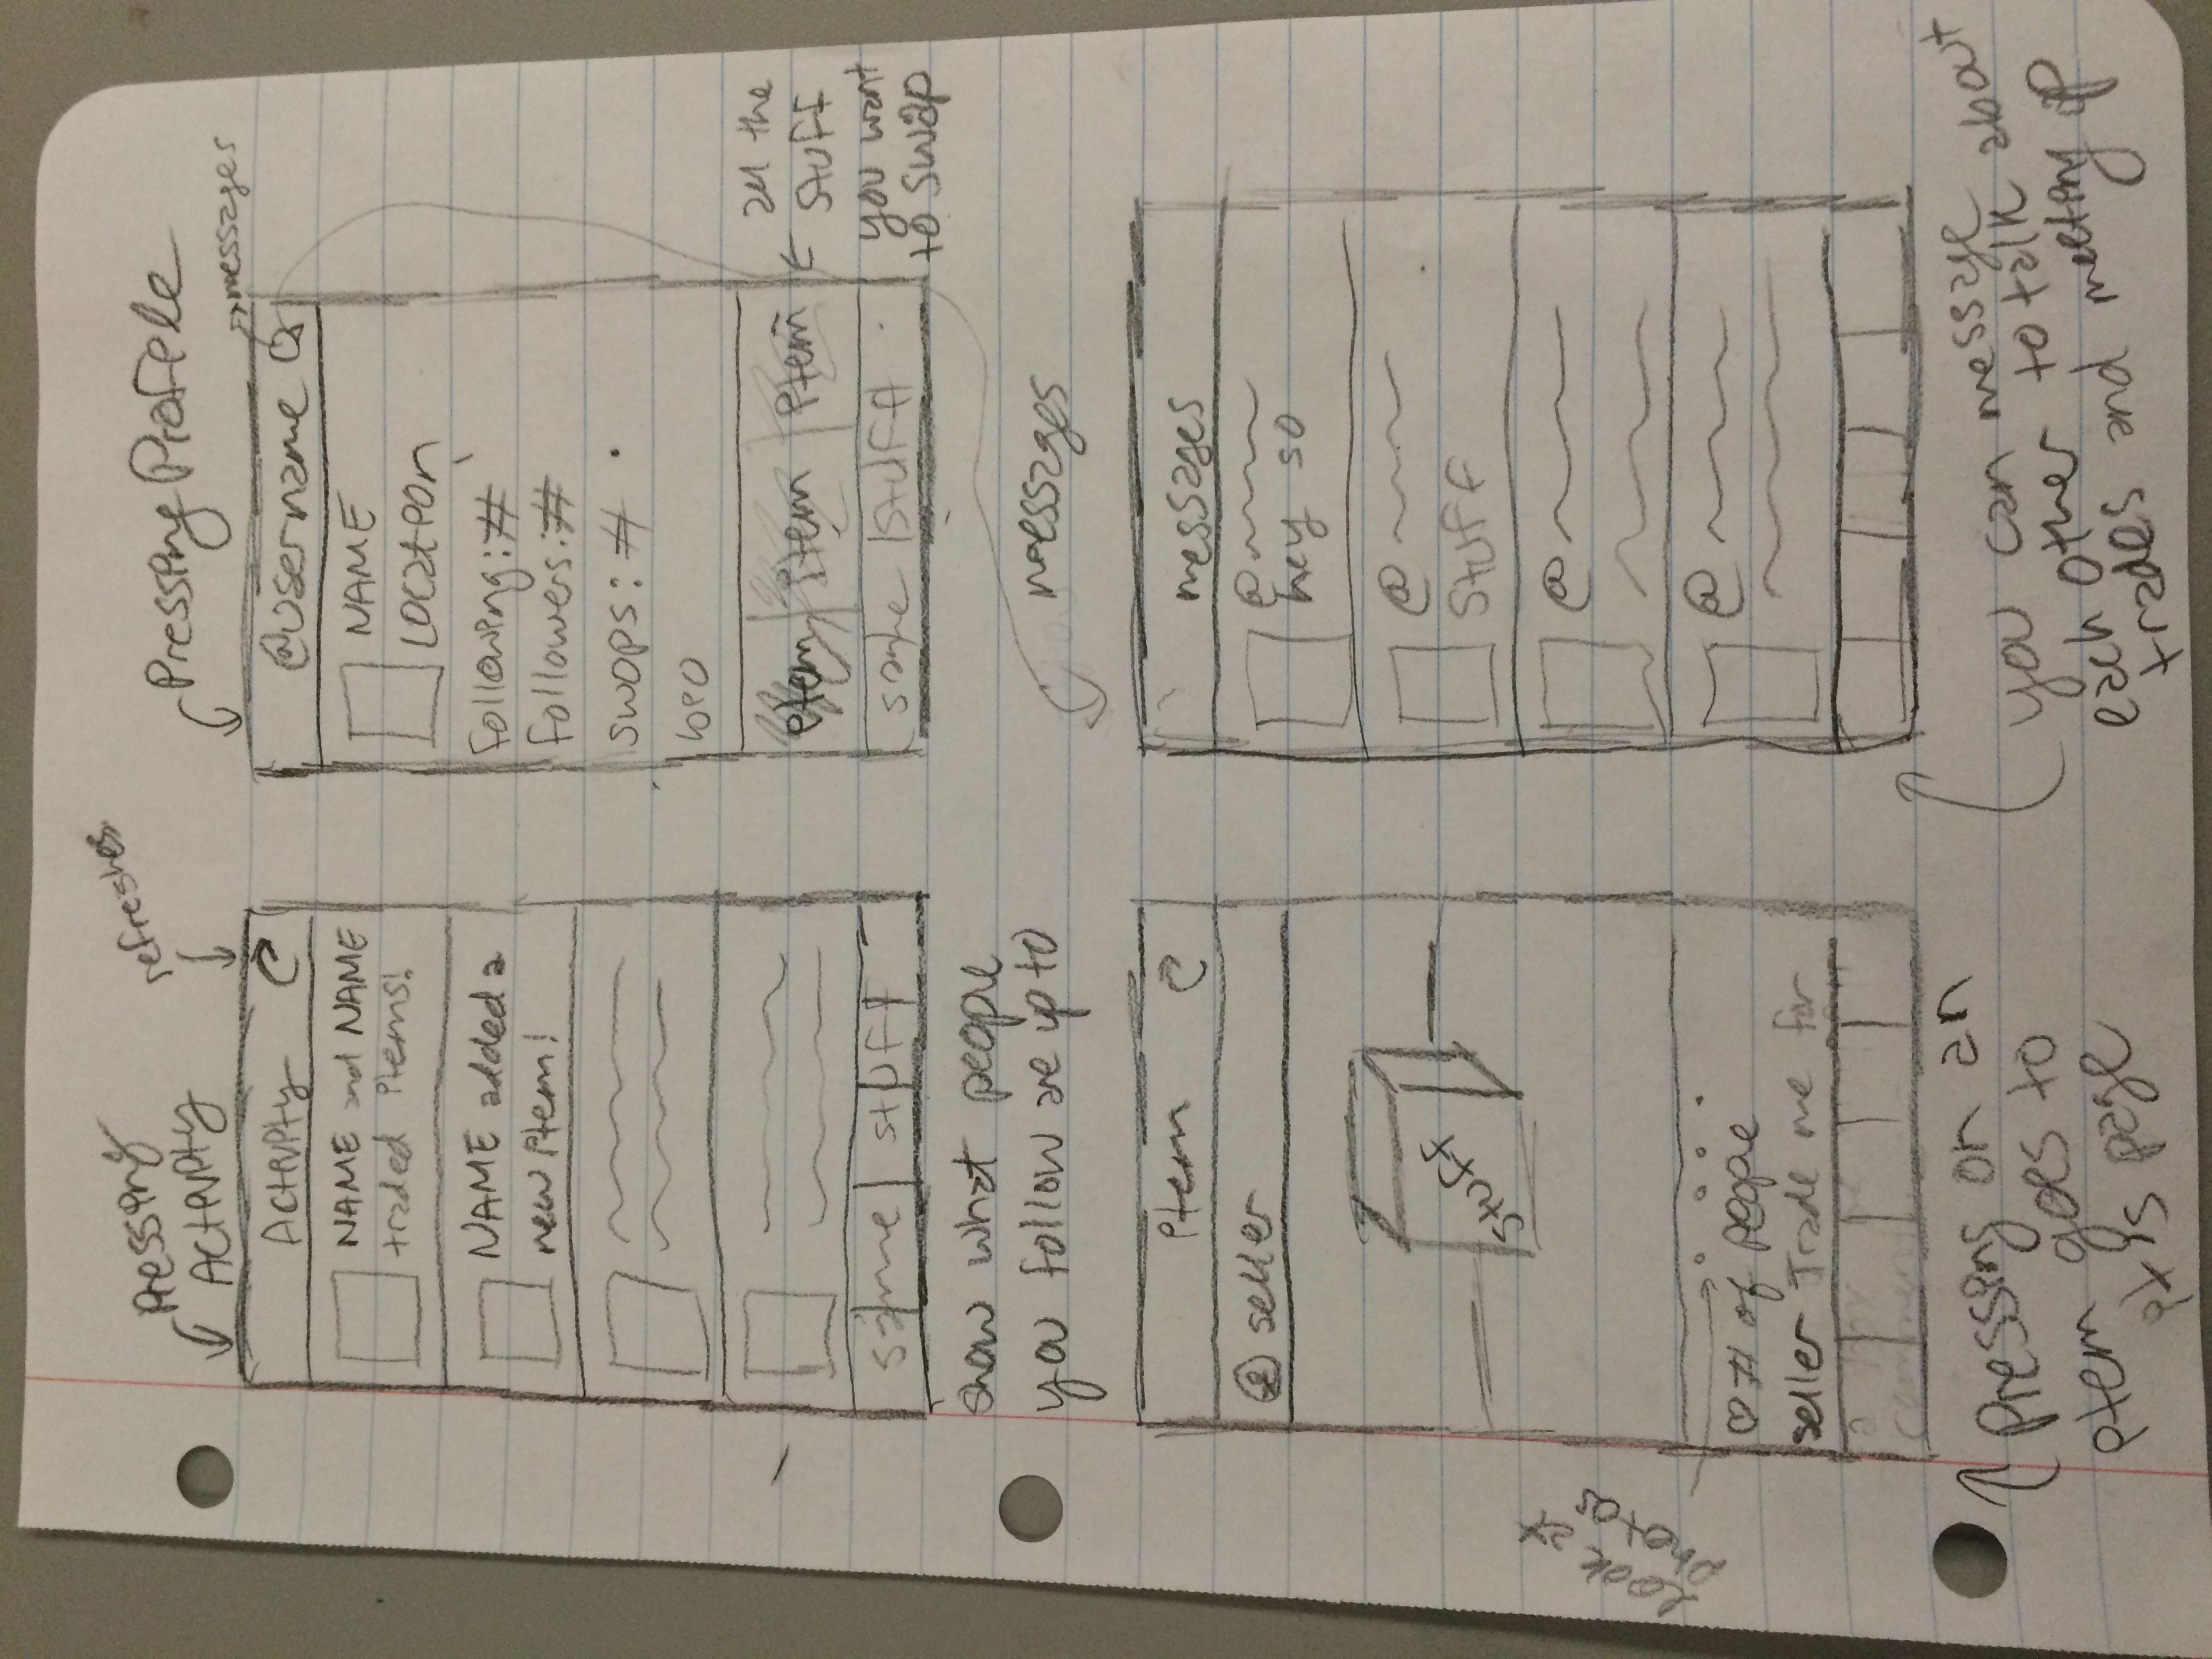 Pressing
Activity
refreshes
Activity
NAME and NAME
traded items!
NAME added a
new item!
same stuff
show what people
you follow are up to
Pressing Profile
messages
@username
NAME
Location
following: #
followers: #
swops: #
bio
item item item
same stuff
all the
stuff
you want
to swap
item
seller
stuff
Look at
photos
♡ # of people
seller Trade me for
a
Pressing on an
item goes to
it's page
messages
messages
@
hey so
@
stuff
@
@
you can message
each other to talk about
trades and meeting up